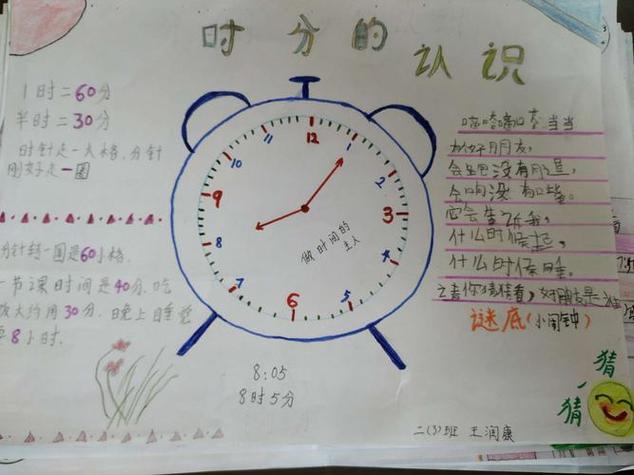 时分的认识
1时=60分
半时=30分
时针走一大格,分针
刚好走一圈
分针转一圈是60小格.
一节课时间是40分.吃
饭大约用30分,晚上睡觉
要8小时.
12
1
2
3
4
5
6
7
8
9
10
11
做时间的
主人
8:05
8时5分
嘀嗒嘀嗒当当
会响没有嘴,
它会告诉我,
什么时候起,
什么时候睡,
谜底(小闹钟)
猜
一
猜
二(3)班 王润康